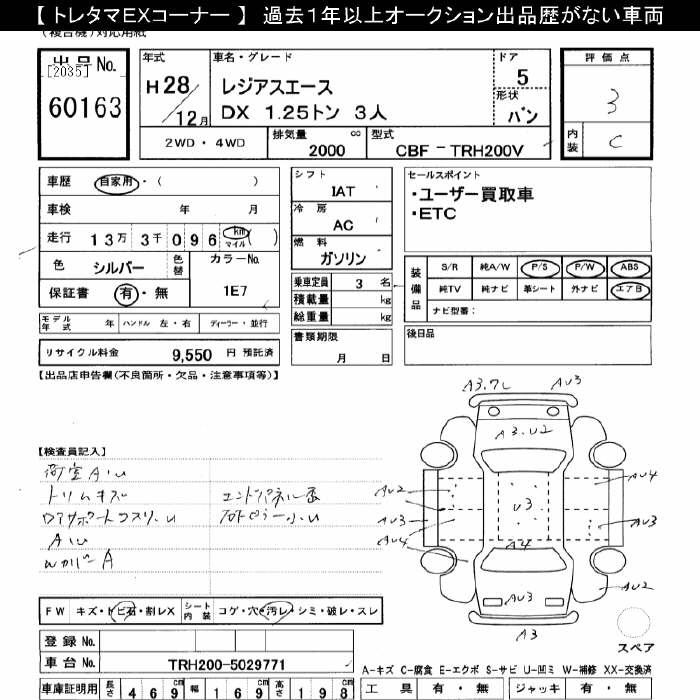 【 トレタマEXコーナー 】 過去1年以上オークション出品歴がない車両
(複合機)対応用紙
出品 No.
[2035]
60163
年式
H 28/12月
車名・グレード
レジアスエース
DX 1.25トン 3人
ドア
5
形状
バン
2WD・4WD
排気量 cc
2000
型式
CBF - TRH200V
評価点
3
内装
C
車歴 自家用・( )
車検 年 月
走行 13万 3千096 km マイル ( )
色 シルバー 色替
カラーNo.
1E7
保証書 有・無
モデル年式 年 ハンドル 左・右 ディーラー・並行
リサイクル料金 9,550 円 預託済
シフト
IAT
冷房
AC
燃料
ガソリン
乗車定員 3 名
積載量 kg
総重量 kg
書類期限
月 日
セールスポイント
・ユーザー買取車
・ETC
装備品
S/R 純A/W P/S P/W ABS
純TV 純ナビ 革シート 外ナビ エアB
ナビ型番:
後日品
【出品店申告欄(不良箇所・欠品・注意事項等)】
【検査員記入】
荷室AU
トリムキズ
AU
カバーA
A3.7L AU3
A3.U2
AU2 AU4
U3
AU3 AU3
AU4 A4
AU3 AU2
A3
スペア
FW キズ・トビ石・割レX シート内装 コゲ・穴・汚レ・シミ・破レ・スレ
登録 No.
車台 No. TRH200-5029771
A-キズ C-腐食 E-エクボ S-サビ U-凹ミ W-補修 XX-交換済
車庫証明用 長さ 469cm 幅 169cm 高さ 198cm
工具 有・無 ジャッキ 有・無